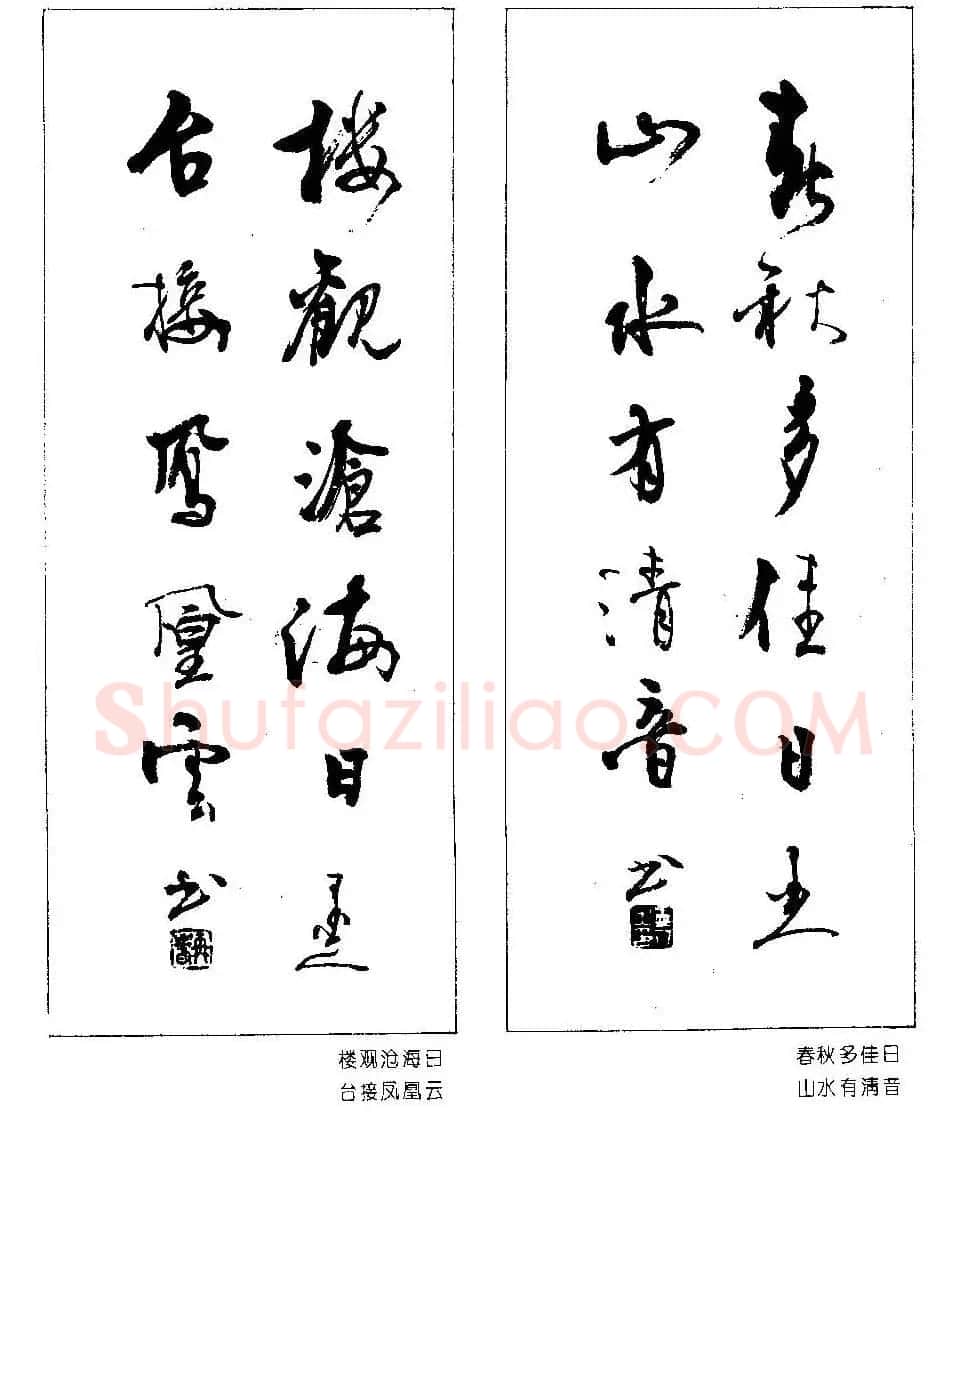 春秋多佳日
山水有清音
书
楼观沧海日
台接凤凰云
书
春秋多佳日
山水有清音
楼观沧海日
台接凤凰云
Shufaziliao.COM